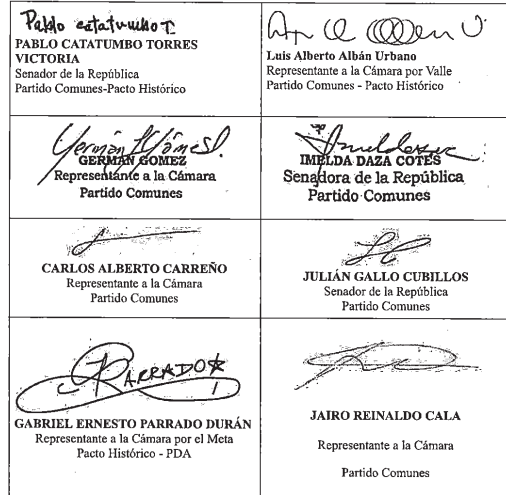 Pablo catatumbo T
PABLO CATATUMBO TORRES
VICTORIA
Senador de la República
Partido Comunes-Pacto Histórico
Luis Alberto Albán Urbano
Representante a la Cámara por Valle
Partido Comunes - Pacto Histórico
Germán Gómez
GERMÁN GÓMEZ
Representante a la Cámara
Partido Comunes
IMELDA DAZA COTES
Senadora de la República
Partido Comunes
CARLOS ALBERTO CARREÑO
Representante a la Cámara
Partido Comunes
JULIÁN GALLO CUBILLOS
Senador de la República
Partido Comunes
PARRADO
GABRIEL ERNESTO PARRADO DURÁN
Representante a la Cámara por el Meta
Pacto Histórico - PDA
JAIRO REINALDO CALA
Representante a la Cámara
Partido Comunes